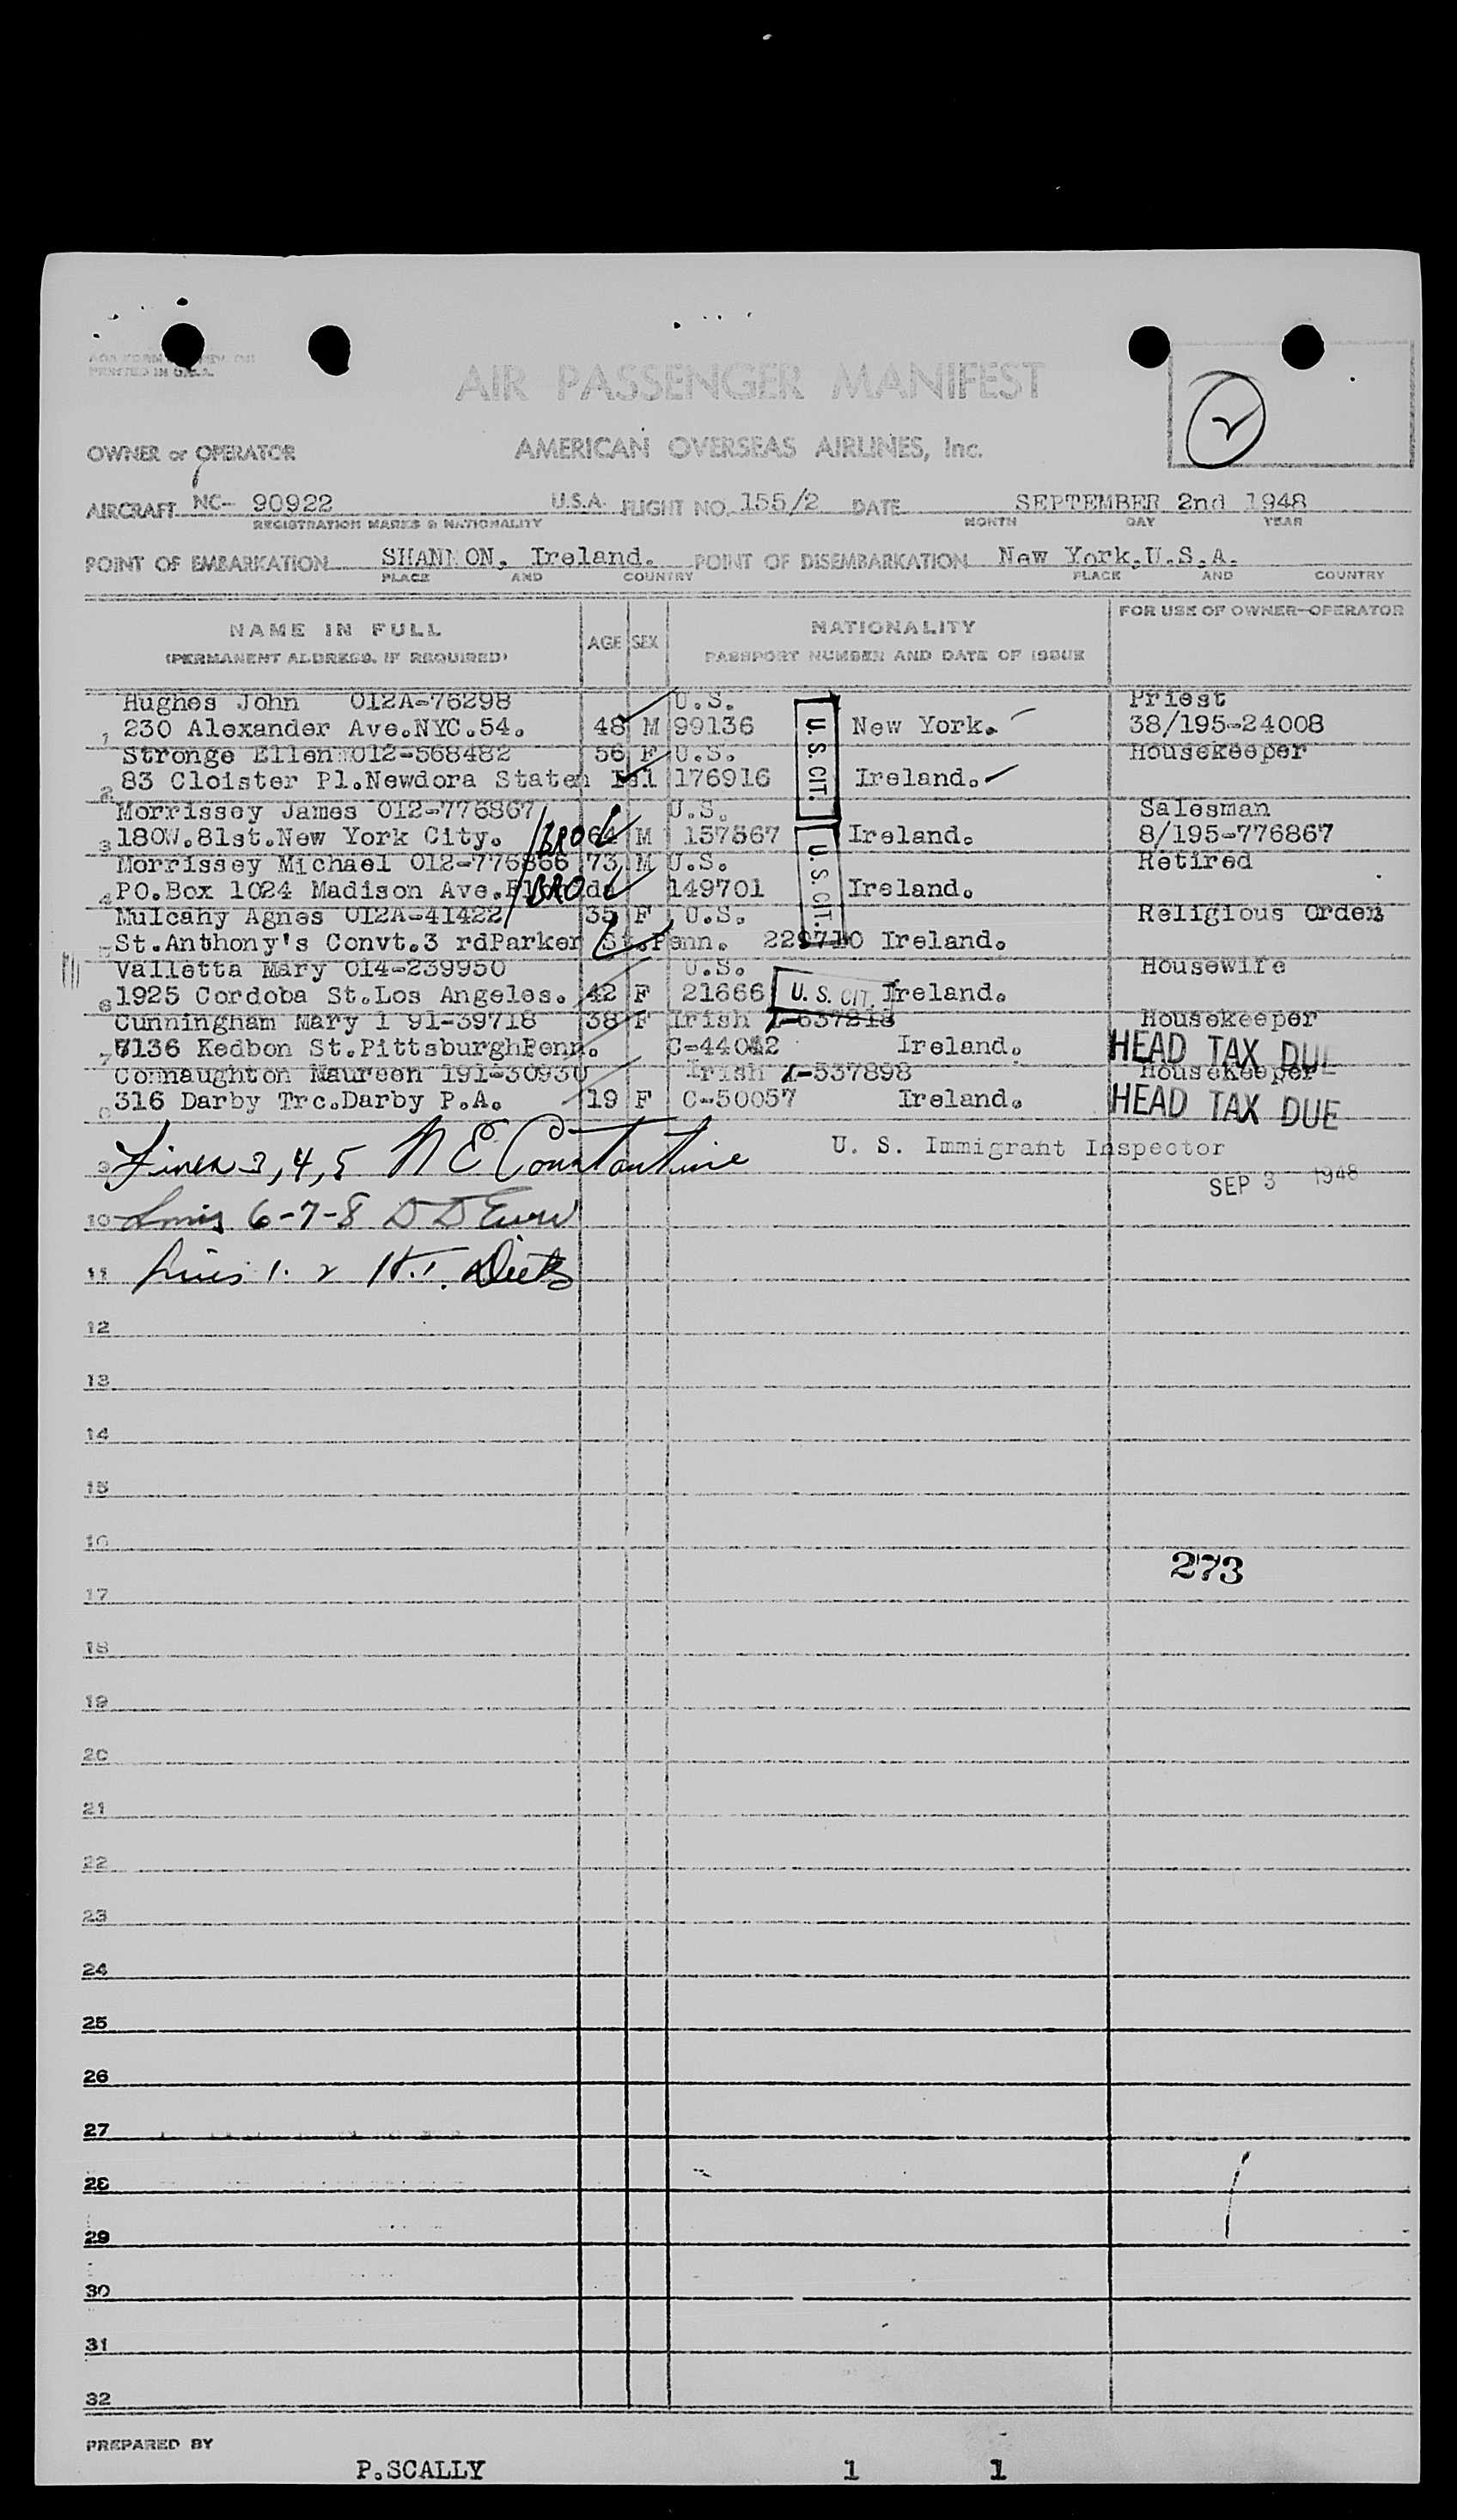 PRINTED IN U.S.A.
AIR PASSENGER MANIFEST
2
OWNER or OPERATOR AMERICAN OVERSEAS AIRLINES, Inc.
AIRCRAFT NC- 90922 U.S.A. FLIGHT NO. 155/2 DATE SEPTEMBER 2nd 1948
REGISTRATION MARKS & NATIONALITY MONTH DAY YEAR
POINT OF EMBARKATION SHANNON, Ireland. POINT OF DISEMBARKATION New York,U.S.A.
PLACE AND COUNTRY PLACE AND COUNTRY
NAME IN FULL AGE SEX NATIONALITY FOR USE OF OWNER-OPERATOR
(PERMANENT ADDRESS, IF REQUIRED) PASSPORT NUMBER AND DATE OF ISSUE
Hughes John 012A-76298 U.S. Priest
1 230 Alexander Ave.NYC.54. 48 M 99136 U.S. CIT. New York. 38/195-24008
Stronge Ellen 012-568482 56 F U.S. Housekeeper
2 83 Cloister Pl.Newdora Staten Isl 176916 Ireland.
Morrissey James 012-776867 U.S. Salesman
3 180W.81st.New York City. BRO 64 M 157567 U.S. CIT. Ireland. 8/195-776867
Morrissey Michael 012-776866 73 M U.S. Retired
4 PO.Box 1024 Madison Ave.Florida BRO 149701 Ireland.
Mulcahy Agnes 012A-41422 35 F U.S. Religious Order
5 St.Anthony's Convt.3 rdParker St.Penn. 229710 Ireland.
Valletta Mary 014-239950 U.S. Housewife
6 1925 Cordoba St.Los Angeles. 42 F 21666 U. S. CIT. Ireland.
Cunningham Mary 1 91-39718 38 F Irish -637218 Housekeeper
7 7136 Kedbon St.PittsburghPenn. C-44042 Ireland. HEAD TAX DUE
Connaughton Maureen 191-30930 Irish -537898 Housekeeper
8 316 Darby Trc.Darby P.A. 19 F C-50057 Ireland. HEAD TAX DUE
U. S. Immigrant Inspector
9 Lines 3,4,5 N E Constantine
SEP 3 1948
10 Lines 6-7-8 D D
11 Lines 1. 2
12
13
14
15
16
273
17
18
19
20
21
22
23
24
25
26
27
28
29
30
31
32
PREPARED BY
P.SCALLY 1 1